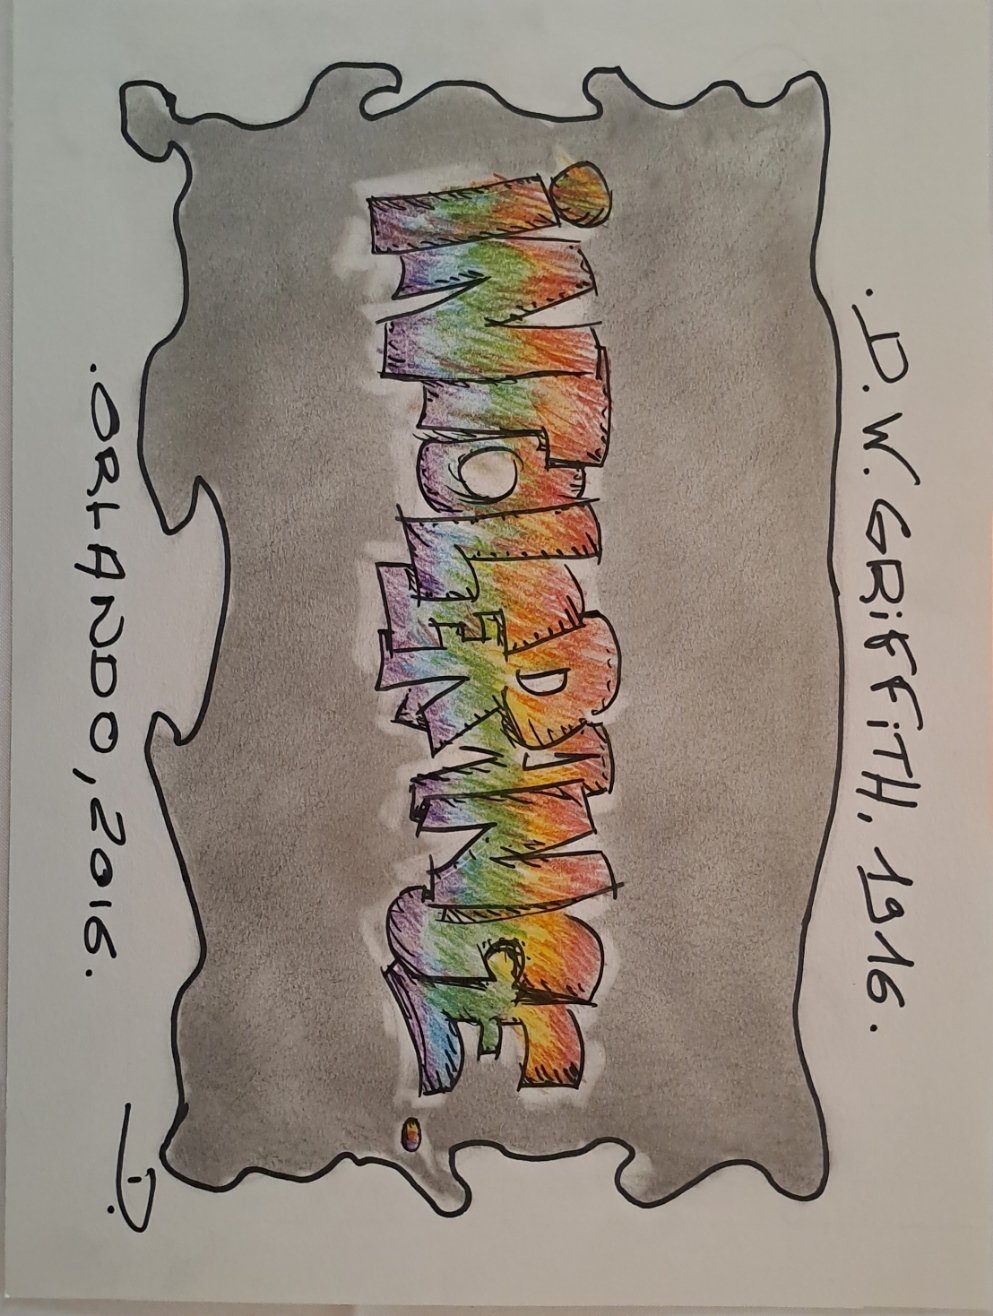 .D.W. GRiFFiTH, 1916.
iNTOLERANCE.
.ORLANDO, 2016.